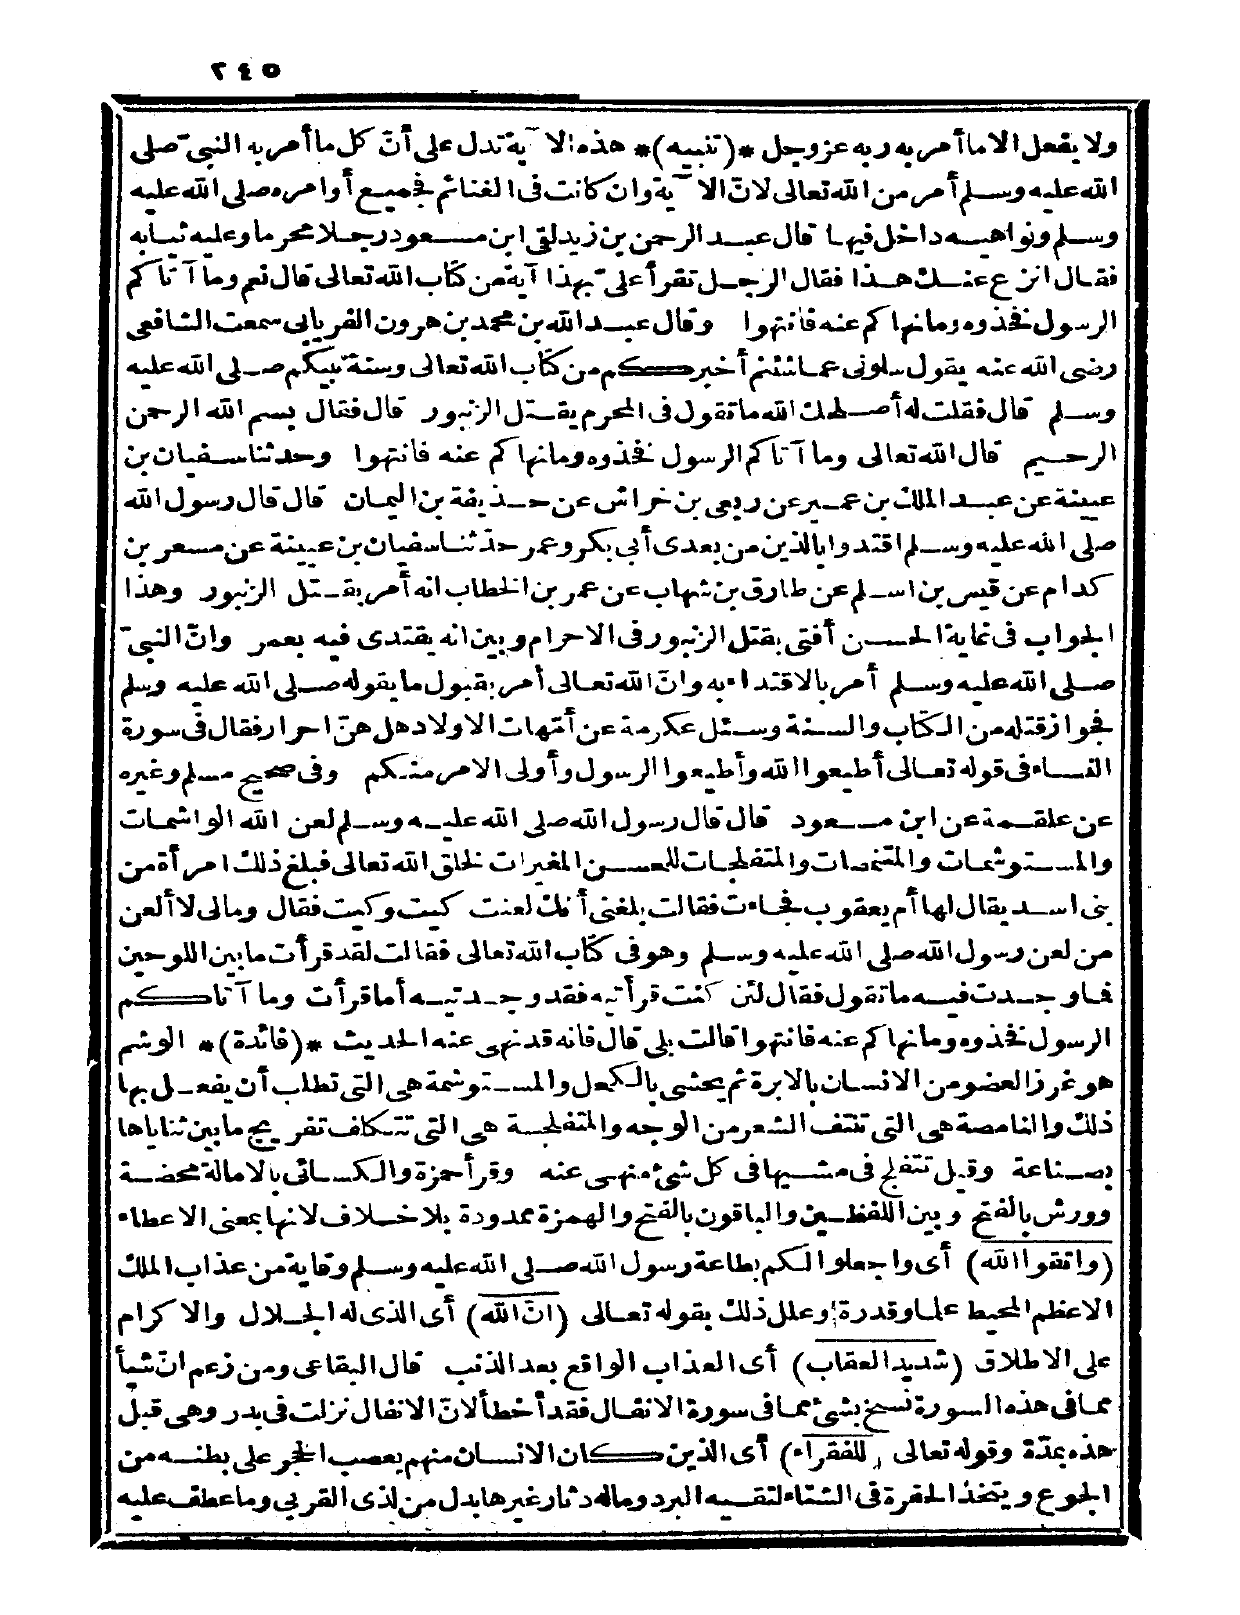 ٢٤٥
ولا يفعل الا ما أمر به ربه عز وجل *(تنبيه)* هذه الآية تدل على أنّ كل ما أمر به النبيّ صلى
الله عليه وسلم أمر من الله تعالى لانّ الآية وان كانت فى الغنائم فجميع أوامره صلى الله عليه
وسلم ونواهيه داخل فيها قال عبد الرحمن بن زيد لقى ابن مسعود رجلا محرما وعليه ثيابه
فقال انزع عنك هذا فقال الرجل تقرأ علىّ بهذا آية من كتاب الله تعالى قال نعم وما آتاكم
الرسول فخذوه وما نهاكم عنه فانتهوا وقال عبد الله بن محمد بن هرون الفريابى سمعت الشافعى
رضى الله عنه يقول سلونى عما شئتم أخبركم من كتاب الله تعالى وسنة نبيكم صلى الله عليه
وسلم قال فقلت له أصلحك الله ما تقول فى المحرم يقتل الزنبور قال فقال بسم الله الرحمن
الرحيم قال الله تعالى وما آتاكم الرسول فخذوه وما نهاكم عنه فانتهوا وحدثنا سفيان بن
عيينة عن عبد الملك بن عمير عن ربعى بن خراش عن حذيفة بن اليمان قال قال رسول الله
صلى الله عليه وسلم اقتدوا بالذين من بعدى أبى بكر وعمر حدّثنا سفيان بن عيينة عن مسعر بن
كدام عن قيس بن اسلم عن طارق بن شهاب عن عمر بن الخطاب انه أمر بقتل الزنبور وهذا
الجواب فى غاية الحسن أفتى بقتل الزنبور فى الاحرام وبين انه يقتدى فيه بعمر وانّ النبىّ
صلى الله عليه وسلم أمر بالاقتداء به وانّ الله تعالى أمر بقبول ما يقوله صلى الله عليه وسلم
فجواز قتله من الكتاب والسنة وسئل عكرمة عن أمّهات الاولاد هل هنّ احرار فقال فى سورة
النساء فى قوله تعالى أطيعوا الله وأطيعوا الرسول وأولى الامر منكم وفى صحيح مسلم وغيره
عن علقمة عن ابن مسعود قال قال رسول الله صلى الله عليه وسلم لعن الله الواشمات
والمستوشمات والمتنمصات والمتفلجات للحسن المغيرات لخلق الله تعالى فبلغ ذلك امرأة من
بنى اسد يقال لها أم يعقوب فجاءت فقالت بلغنى أنك لعنت كيت وكيت فقال ومالى لا ألعن
من لعن رسول الله صلى الله عليه وسلم وهو فى كتاب الله تعالى فقالت لقد قرأت ما بين اللوحين
فما وجدت فيه ما تقول فقال لئن كنت قرأتيه فقد وجدتيه أما قرأت وما آتاكم
الرسول فخذوه وما نهاكم عنه فانتهوا قالت بلى قال فانه قد نهى عنه الحديث *(فائدة)* الوشم
هو غرز العضو من الانسان بالابرة ثم يحشى بالكحل والمستوشمة هى التى تطلب أن يفعل بها
ذلك والنامصة هى التى تنتف الشعر من الوجه والمتفلجة هى التى تتكاف تفريج ما بين ثناياها
بصناعة وقيل تتفلج فى مشيها فى كل شئ منهى عنه وقرأ حمزة والكسائى بالامالة محضة
وورش بالفتح وبين اللفظين والباقون بالفتح والهمزة ممدودة بلا خلاف لانها بمعنى الاعطاء
(واتقوا الله) أى واجعلوا لكم بطاعة رسول الله صلى الله عليه وسلم وقاية من عذاب الملك
الاعظم المحيط علما وقدرة وعلل ذلك بقوله تعالى (انّ الله) أى الذى له الجلال والاكرام
على الاطلاق (شديد العقاب) أى العذاب الواقع بعد الذنب قال البقاعى ومن زعم انّ شيأ
مما فى هذه السورة نسخ بشئ مما فى سورة الانفال فقد أخطأ لانّ الانفال نزلت فى بدر وهى قبل
هذه بمدّة وقوله تعالى (للفقراء) أى الذين كان الانسان منهم يعصب الحجر على بطنه من
الجوع ويتخذ الحفرة فى الشتاء لتقيه البرد وماله دثار غيرها بدل من لذى القربى وما عطف عليه